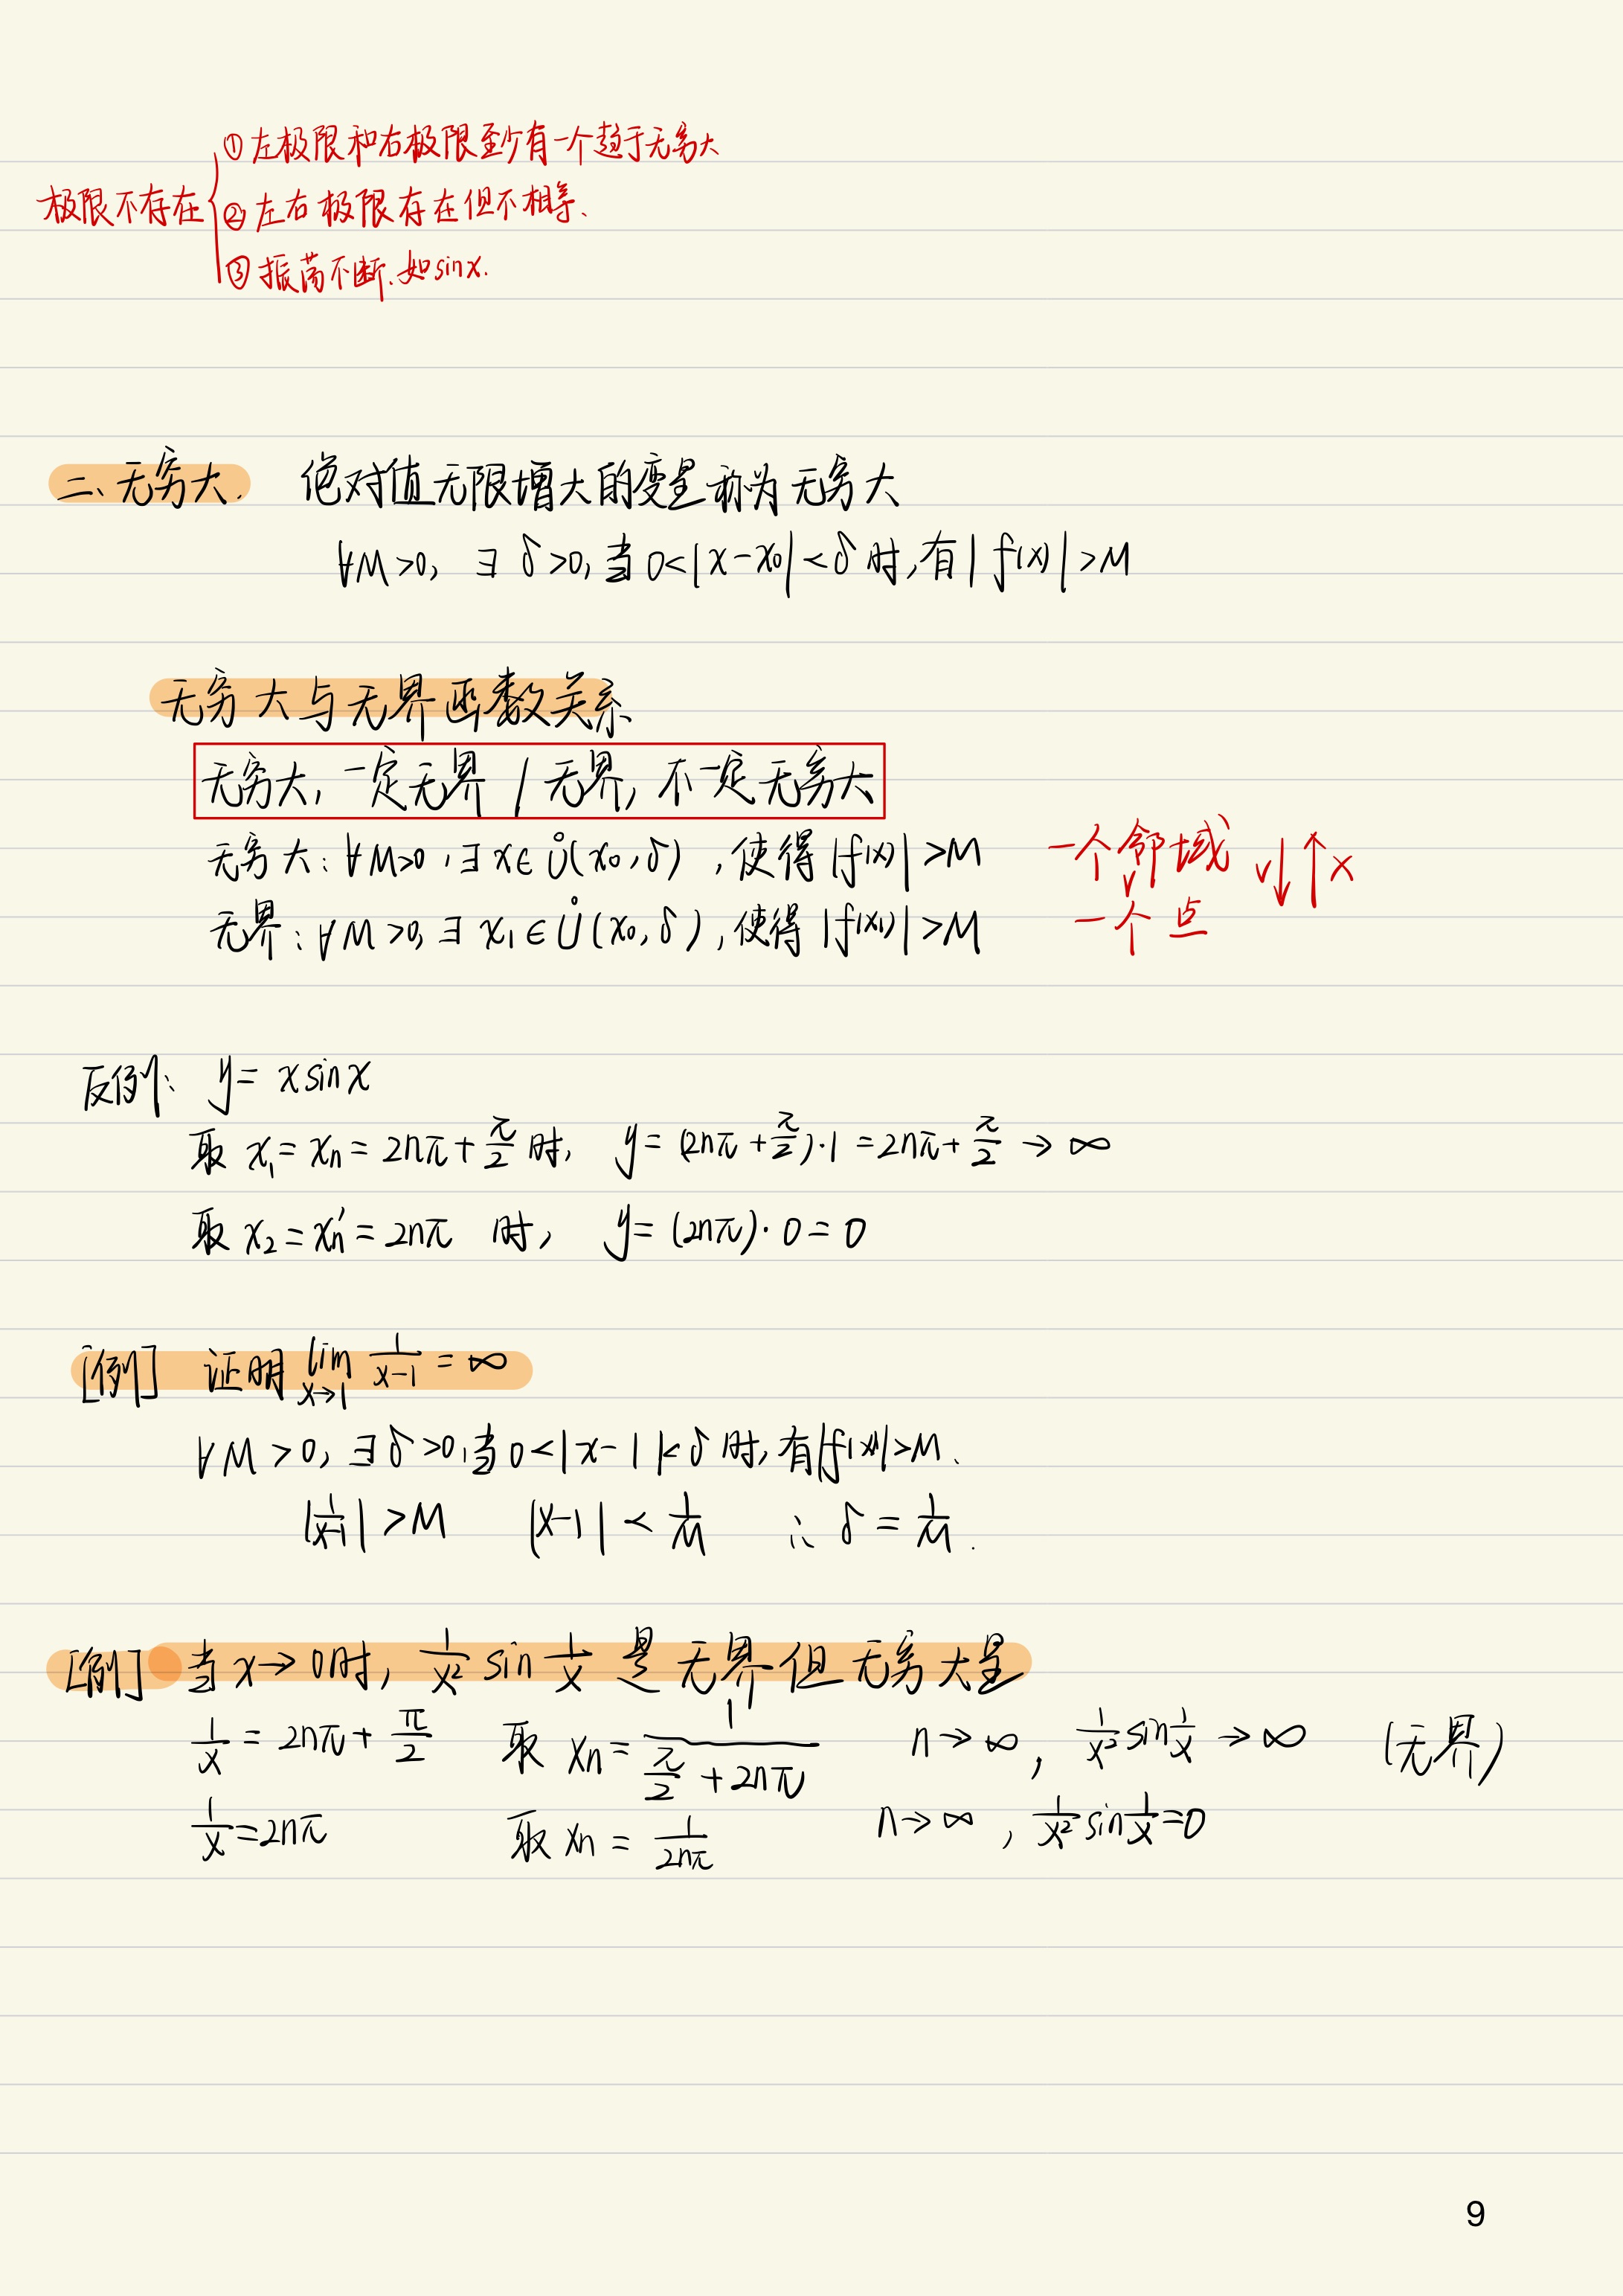 极限不存在
① 左极限和右极限至少有一个趋于无穷大
② 左右极限存在但不相等、
③ 振荡不断、如sinx.
二、无穷大. 绝对值无限增大的变量称为无穷大
∀M>0, ∃ δ>0, 当 0<|x-x₀|<δ 时, 有|f(x)|>M
无穷大与无界函数关系
无穷大, 一定无界 / 无界, 不一定无穷大
无穷大: ∀M>0, ∃ x∈Ů(x₀, δ), 使得 |f(x)|>M 一个邻域 ∨↓↑×
∨
无界: ∀M>0, ∃ x₁∈Ů(x₀, δ), 使得 |f(x₁)|>M 一个点
反例: y= xsinx
取 x₁=xn=2nπ+π/2 时, y=(2nπ+π/2)·1=2nπ+π/2→∞
取 x₂=xn'=2nπ 时, y=(2nπ)·0=0
[例] 证明 lim x→1 1/(x-1) = ∞
∀M>0, ∃δ>0, 当 0<|x-1|<δ 时, 有|f(x)|>M、
|1/(x-1)|>M |x-1|<1/M ∴ δ=1/M.
[例] 当 x→0时, 1/x² sin 1/x 是无界但无穷大量
1/x=2nπ+π/2 取 xn=1/(π/2+2nπ) n→∞, 1/x² sin 1/x→∞ (无界)
1/x=2nπ 取 xn=1/2nπ n→∞, 1/x² sin 1/x=0
9